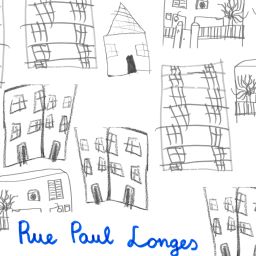 Rue Paul Longes